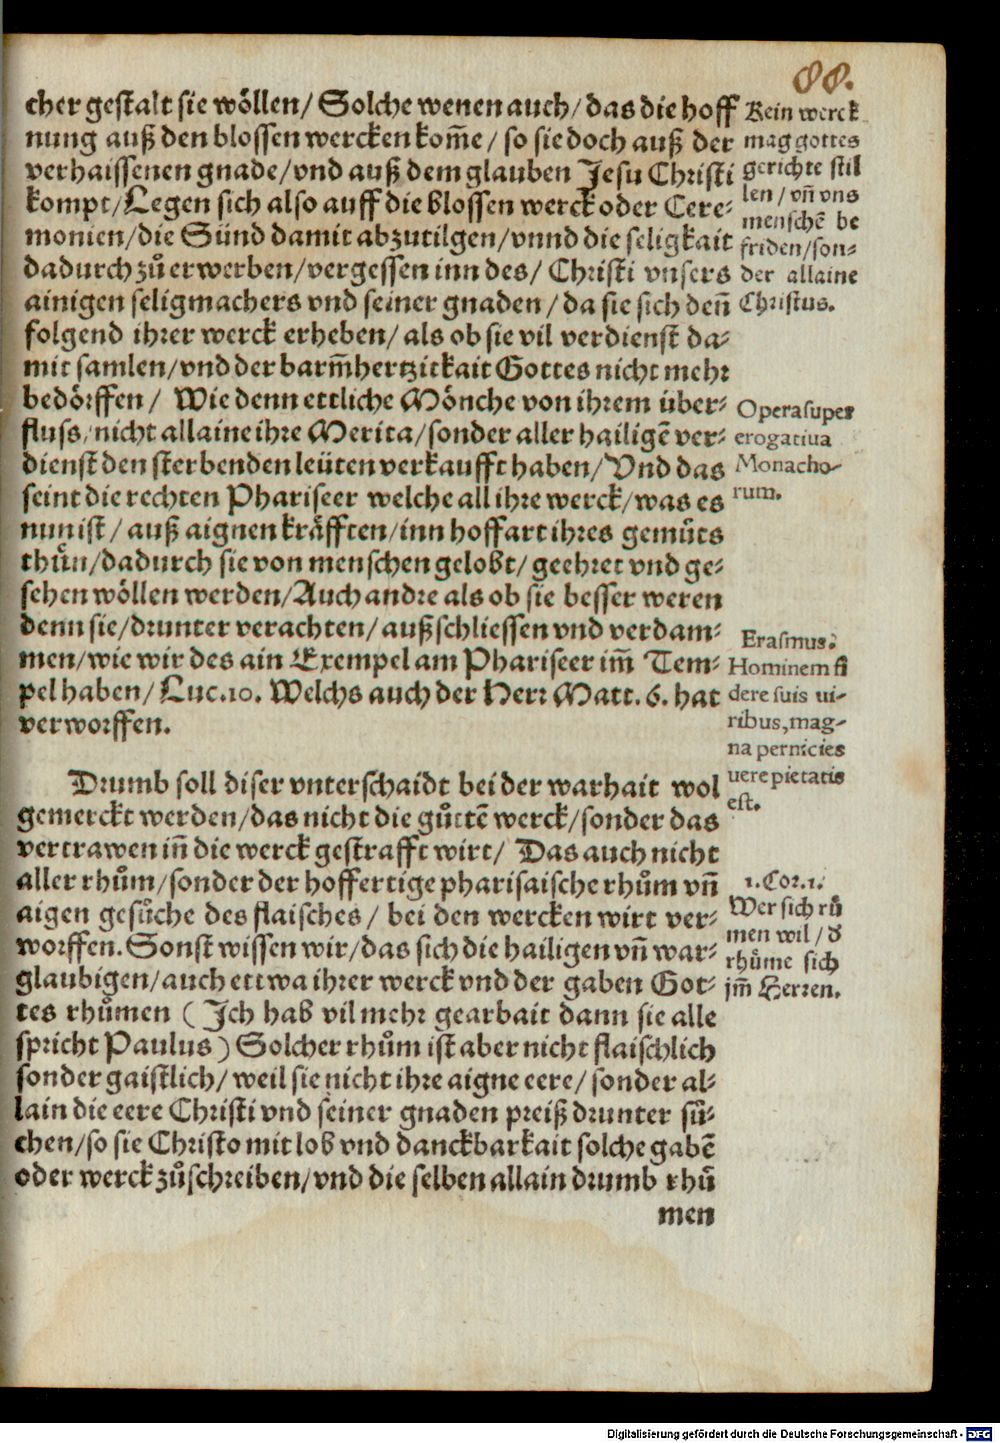 88.
cher gestalt sie wöllen/ Solche wenen auch/ das die hoff
nung auß den blossen wercken kom̃e/ so sie doch auß der
verhaissenen gnade/ vnd auß dem glauben Jesu Christi
kompt/ Legen sich also auff die blossen werck oder Cere⸗
monien/ die Sünd damit abzutilgen/ vnnd die seligkait
dadurch zů erwerben/ vergessen inn des/ Christi vnsers
ainigen seligmachers vnd seiner gnaden/ da sie sich deñ
folgend ihrer werck erheben/ als ob sie vil verdienst da⸗
mit samlen/ vnd der barm̃hertzitkait Gottes nicht mehr
bedörffen/ Wie denn ettliche Mönche von ihrem über⸗
fluss/ nicht allaine ihre Merita/ sonder aller hailigẽ ver⸗
dienst den sterbenden leüten verkaufft haben/ Vnd das
seint die rechten Phariseer welche all ihre werck/ was es
nun ist/ auß aignen kräfften/ inn hoffart ihres gemůts
thůn/ dadurch sie von menschen gelobt/ geehret vnd ge⸗
sehen wöllen werden/ Auch andre als ob sie besser weren
denn sie/ drunter verachten/ auß schliessen vnd verdam⸗
men/ wie wir des ain Exempel am Phariseer im̃ Tem⸗
pel haben/ Luc.10. Welchs auch der Herr Matt. 6. hat
verworffen.
Drumb soll diser vnterschaidt bei der warhait wol
gemerckt werden/ das nicht die gůttẽ werck/ sonder das
vertrawen iñ die werck gestrafft wirt/ Das auch nicht
aller rhům/ sonder der hoffertige pharisaische rhům vñ
aigen gesůche des flaisches/ bei den wercken wirt ver⸗
worffen. Sonst wissen wir/ das sich die hailigen vñ war⸗
glaubigen/ auch ettwa ihrer werck vnd der gaben Got⸗
tes rhůmen ( Ich hab vil mehr gearbait dann sie alle
spricht Paulus ) Solcher rhům ist aber nicht flaischlich
sonder gaistlich/ weil sie nicht ihre aigne eere/ sonder al⸗
lain die eere Christi vnd seiner gnaden preiß drunter sů⸗
chen/ so sie Christo mit lob vnd danckbarkait solche gabẽ
oder werck zůschreiben/ vnd die selben allain drumb rhů
men
Kein werck
mag gottes
gerichte stil
len/ vñ vns
menschẽ be
friden/ son⸗
der allaine
Christus.
Opera super
erogatiua
Monacho-
rum.
Erasmus:
Hominem fi
dere suis ui-
ribus, mag-
na pernicies
uere pietatis
est.
1. Cor. 1.
Wer sich rů
men wil/ d
rhůme sich
im̃ Herren.
Digitalisierung gefördert durch die Deutsche Forschungsgemeinschaft - DFG